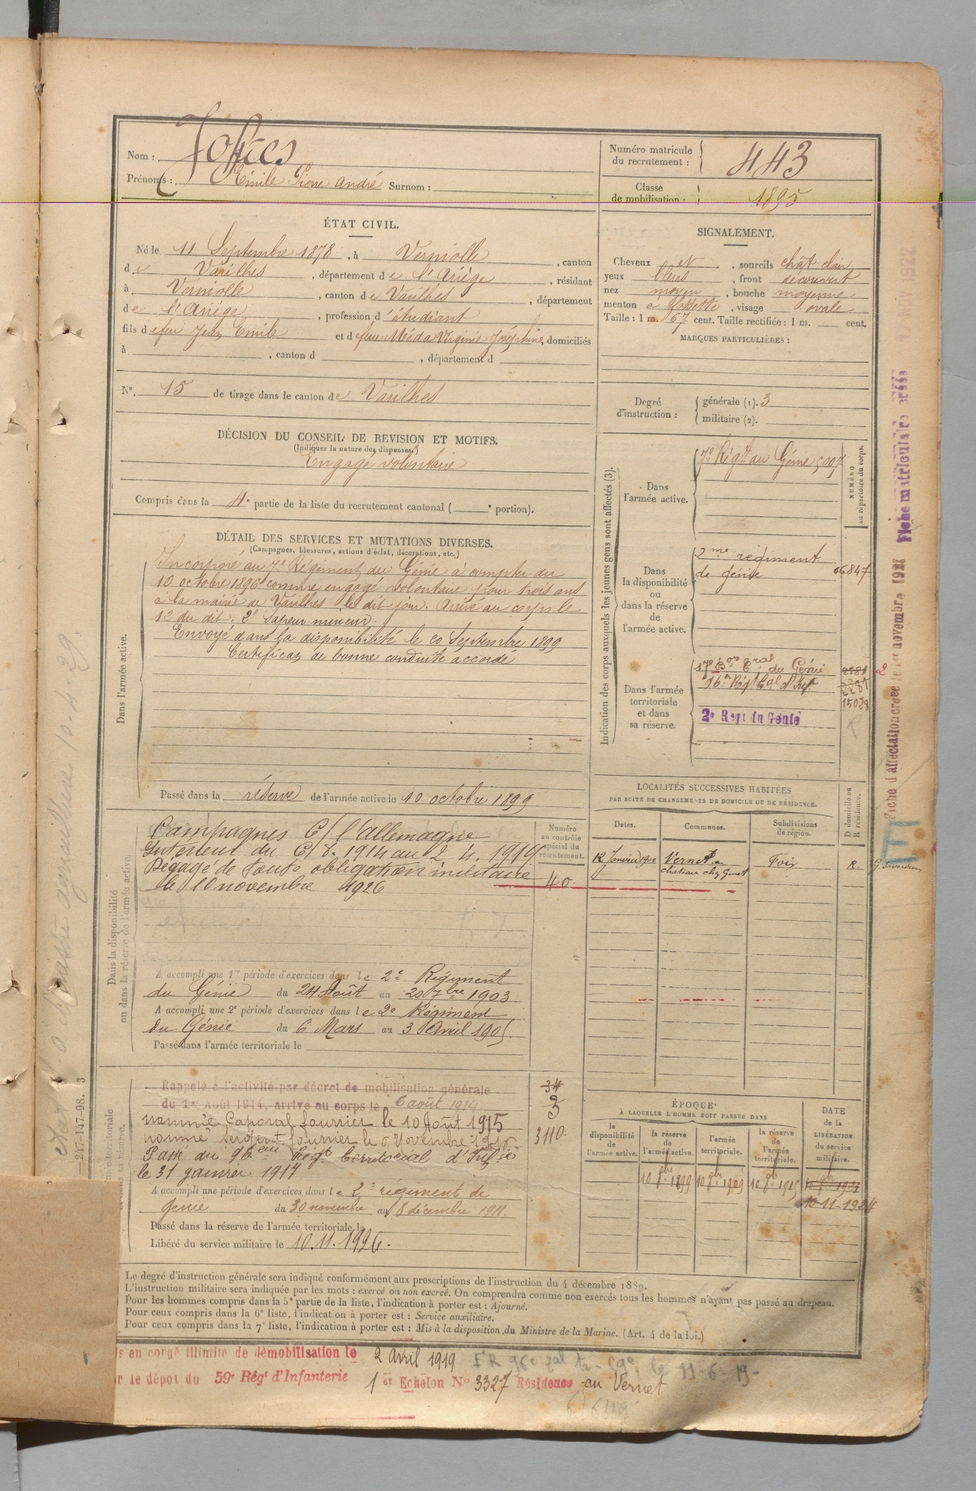 Nom :
Prénoms : Emile Pierre André Surnom :
Numéro matricule du recrutement : 443
Classe de mobilisation : 1895
ÉTAT CIVIL.
Né le 11 Septembre 1878, à Verniolle, canton
de Varilhes, département de l'Ariège, résidant
à Verniolle, canton de Varilhes, département
de l'Ariège, profession d'étudiant
fils de feu Jean Emile et de feu Méda Virginie Joséphine, domiciliés
à , canton d , département d
N° 15 de tirage dans le canton de Varilhes
SIGNALEMENT.
Cheveux et , sourcils chât clair
yeux bleus, front découvert
nez moyen, bouche moyenne
menton à fossette, visage ovale
Taille : 1 m. 67 cent. Taille rectifiée : 1 m. cent.
MARQUES PARTICULIÈRES :
Degré d'instruction :
générale (1). 3
militaire (2).
DÉCISION DU CONSEIL DE REVISION ET MOTIFS.
(Indiquer la nature des dispenses)
Engagé volontaire
Compris dans la 4e partie de la liste du recrutement cantonal ( e portion).
DÉTAIL DES SERVICES ET MUTATIONS DIVERSES.
(Campagnes, blessures, actions d'éclat, décorations, etc.)
Dans l'armée active.
Incorporé au 7e Régiment du Génie à compter du
10 octobre 1896 comme engagé volontaire pour trois ans
à la mairie de Varilhes le dit jour. Arrivé au corps le
du dit. 2e Sapeur mineur.
Envoyé dans la disponibilité le 20 Septembre 1899
Certificat de bonne conduite accordé
Passé dans la réserve de l'armée active le 10 octobre 1899
Indication des corps auxquels les jeunes gens sont affectés (3).
NUMÉRO au répertoire du corps.
Dans l'armée active.
7e Régt du Génie
Dans la disponibilité ou dans la réserve de l'armée active.
2me régiment
de génie
Dans l'armée territoriale et dans sa réserve.
17e Bon Tal du Génie
96e Régt Tal d'Inf
2e Regt du Génie
Dans la disponibilité
ou dans la réserve de l'armée active.
Campagnes C/ l'allemagne
Intérieur du 6.8.1914 au 2.4.1919
Dégagé de toute obligation militaire
le 10 novembre 1926
Numéro au contrôle spécial du recrutement.
40
A accompli une 1re période d'exercices dans le 2e Régiment
du Génie du 24 Août au 20 7bre 1903
A accompli une 2e période d'exercices dans le 2e Régiment
du Génie du 6 Mars au 3 Avril 1905
Passé dans l'armée territoriale le
LOCALITÉS SUCCESSIVES HABITÉES
PAR SUITE DE CHANGEMENTS DE DOMICILE OU DE RÉSIDENCE.
Dates. Communes. Subdivisions de région. D domicile ou R résidence.
12 Janvier 1900 Vernet Foix R
Rappelé à l'activité par décret de mobilisation générale
du 1er Août 1914, arrivé au corps le 6 août 1914
nommé Caporal fourrier le 10 Août 1915
nommé Sergent fourrier le 6 Novembre 1915
Passé au 96ème Régt Territorial d'Infie
le 31 janvier 1917
A accompli une période d'exercices dans le 2e régiment de
Génie du 30 novembre au 8 décembre 1911.
Passé dans la réserve de l'armée territoriale le
Libéré du service militaire le 10.11.1926.
34
3110
ÉPOQUE
À LAQUELLE L'HOMME DOIT PASSER DANS
la disponibilité de l'armée active.
la réserve de l'armée active.
l'armée territoriale.
la réserve de l'armée territoriale.
DATE de la LIBÉRATION du service militaire.
10 8bre 1899 10 8bre 1909 10 8bre 1915
Le degré d'instruction générale sera indiqué conformément aux prescriptions de l'instruction du 4 décembre 1889.
L'instruction militaire sera indiquée par les mots : exercé ou non exercé. On comprendra comme non exercés tous les hommes n'ayant pas passé au drapeau.
Pour les hommes compris dans la 5e partie de la liste, l'indication à porter est : Ajourné.
Pour ceux compris dans la 6e liste, l'indication à porter est : Service auxiliaire.
Pour ceux compris dans la 7e liste, l'indication à porter est : Mis à la disposition du Ministre de la Marine. (Art. 4 de la loi.)
en congé illimité de démobilisation le 2 Avril 1919
le dépôt du 59e Régt d'Infanterie 1er Echelon N° 3327 Résidence au Vernet
247-147-98.
Fiche matriculaire
Fiche d'affectation novembre